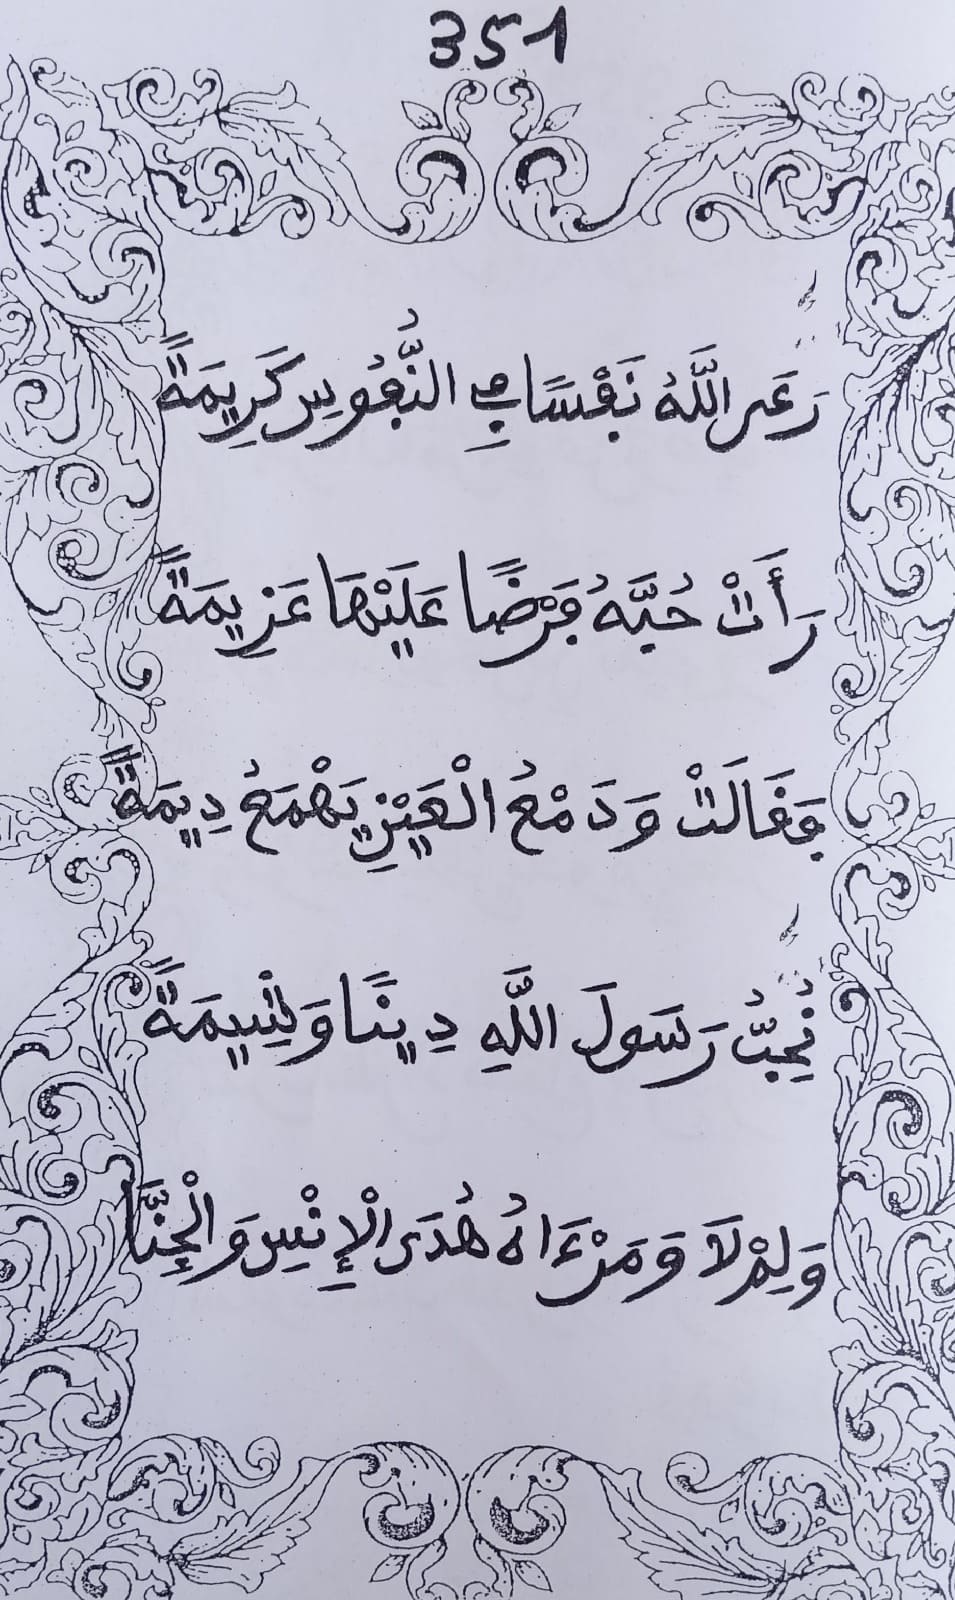 351
رَعَى اللَّهُ نَفْسًا فِي النُّفُوسِ كَرِيمَةً
رَأَتْ حُبَّهُ فَرْضًا عَلَيْهَا عَزِيمَةً
فَقَالَتْ وَدَمْعُ الْعَيْنِ يَهْمَعُ دِيمَةً
نُحِبُّ رَسُولَ اللَّهِ دِينًا وَشِيمَةً
وَلِمْ لَا وَمَرْءَاهُ هُدَى الْإِنْسِ وَالْجِنَّا